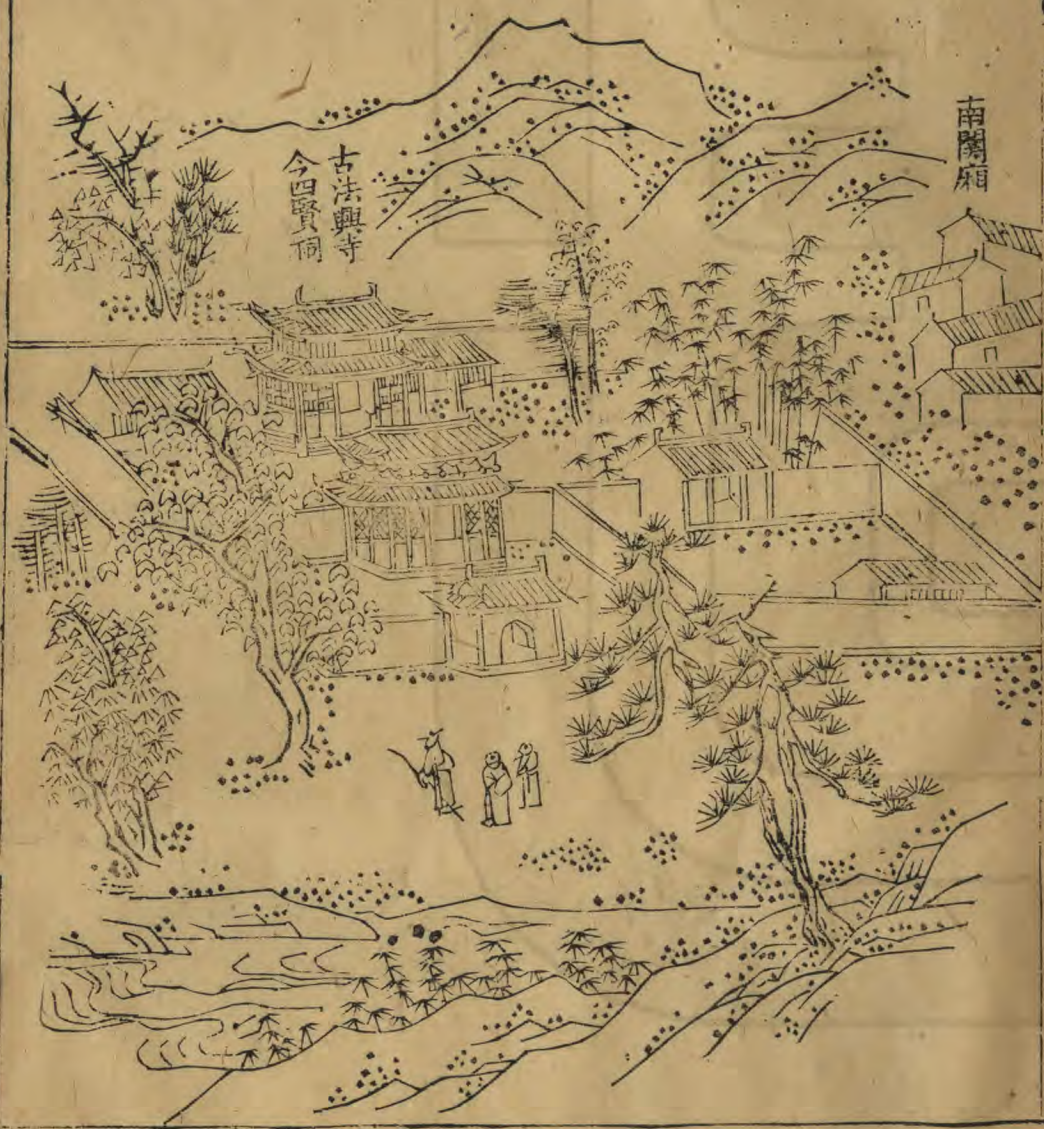 南關廂
古法興寺
今四賢祠